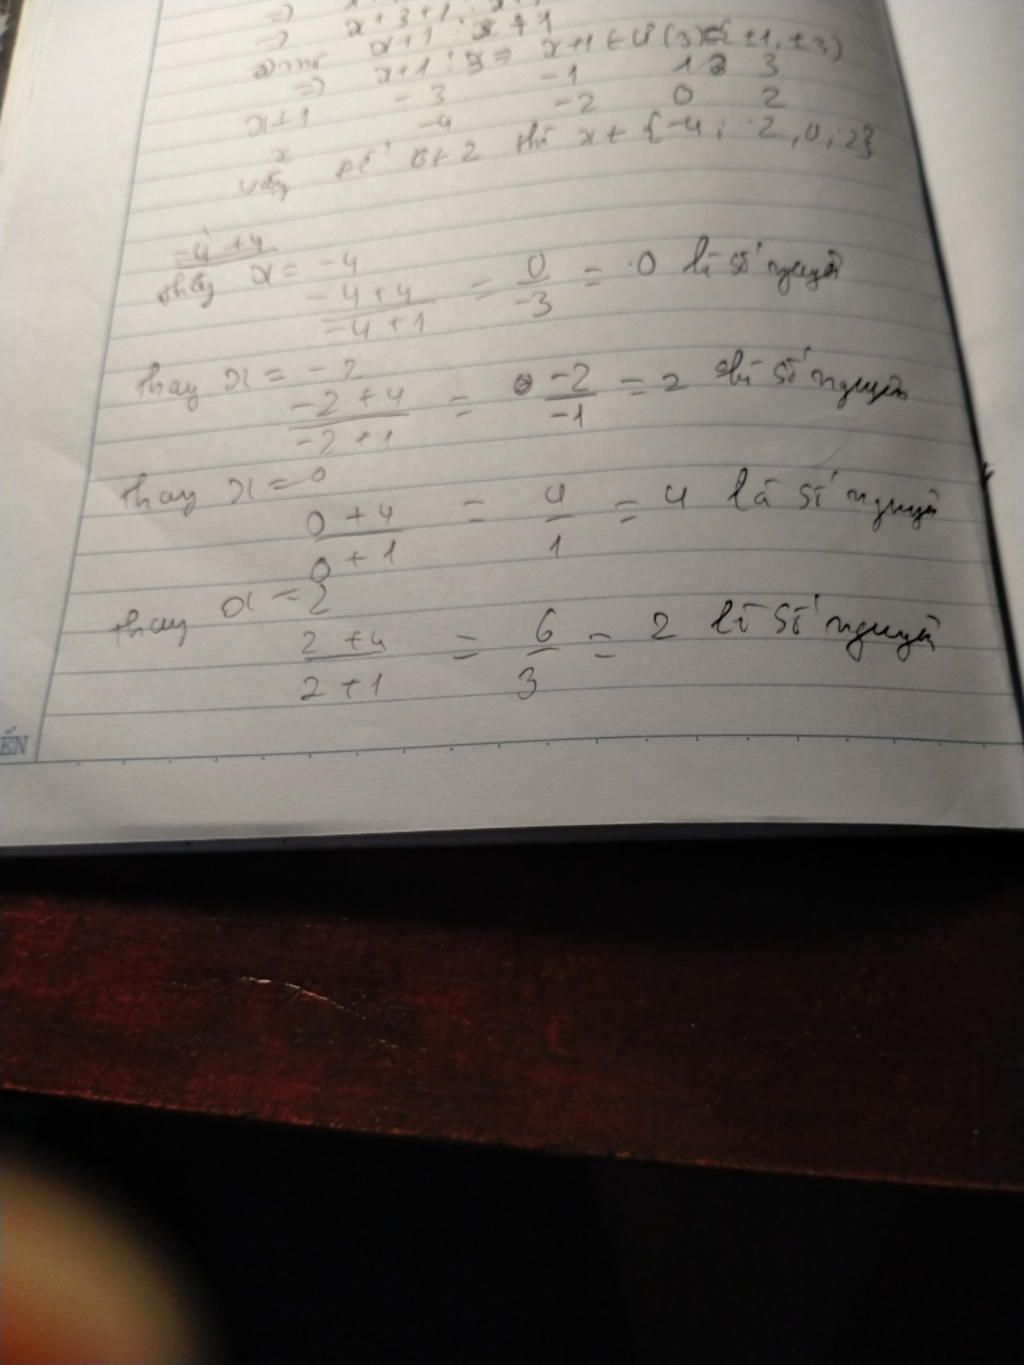 => x+3+1
=> x+1
=> x+1 ⋮ 3 => x+1 ∈ Ư(3)={±1, ±3)
x+1 -3 -1 1 3
x -4 -2 0 2
vậy thì x ∈ {-4; -2, 0; 2}
-4 +4
thay x = -4
-4+4/-4+1 = 0/-3 = 0 là số nguyên
thay x = -2
-2+4/-2+1 = -2/-1 = 2 là số nguyên
thay x = 0
0+4/0+1 = 4/1 = 4 là số nguyên
thay x = 2
2+4/2+1 = 6/3 = 2 là số nguyên
ẾN